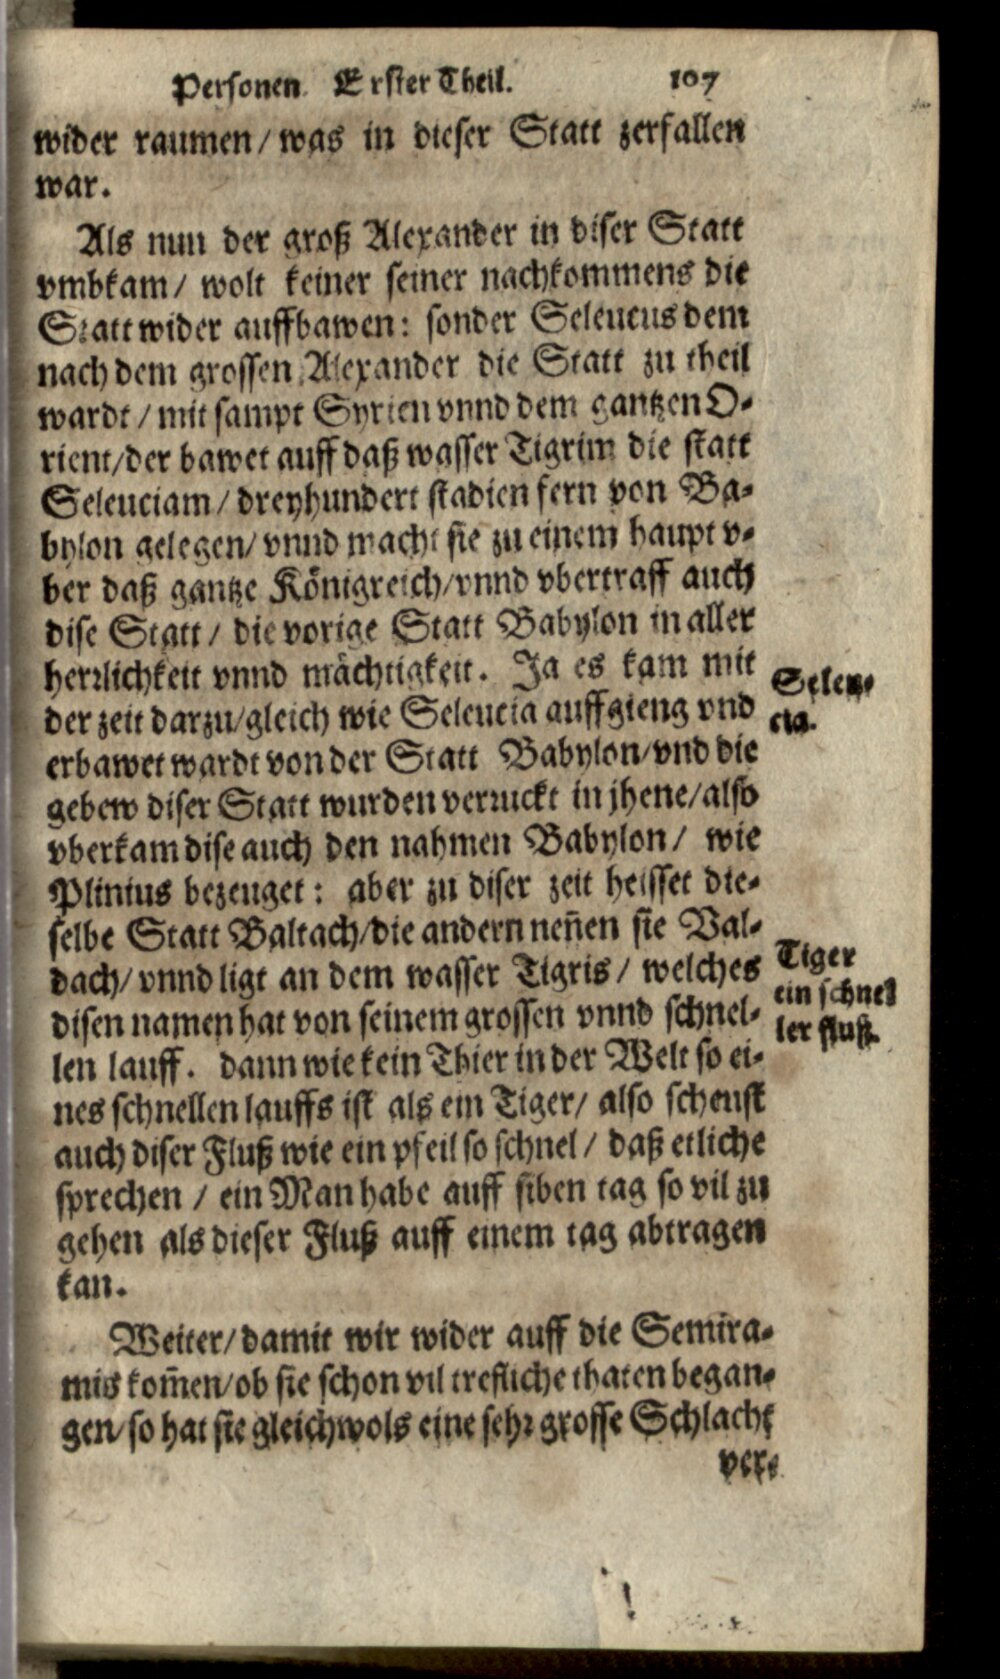 Personen Erster Theil. 107
wider raumen/ was in dieser Statt zerfallen
war.
Als nun der groß Alexander in diser Statt
vmbkam/ wolt keiner seiner nachkommens die
Statt wider auffbawen: sonder Seleucus dem
nach dem grossen Alexander die Statt zu theil
wardt/ mit sampt Syrien vnnd dem gantzen O-
rient/ der bawet auff daß wasser Tigrim die statt
Seleuciam/ dreyhundert stadien fern von Ba-
bylon gelegen/ vnnd macht sie zu einem haupt v-
ber daß gantze Königreich/ vnnd vbertraff auch
dise Statt/ die vorige Statt Babylon in aller
herrlichkeit vnnd mächtigkeit. Ja es kam mit
der zeit darzu/ gleich wie Seleucia auffgieng vnd
erbawet wardt von der Statt Babylon/ vnd die
gebew diser Statt wurden verruckt in jhene/ also
vberkam dise auch den nahmen Babylon/ wie
Plinius bezeuget: aber zu diser zeit heisset die-
selbe Statt Baltach/ die andern neñen sie Val-
dach/ vnnd ligt an dem wasser Tigris/ welches
disen namen hat von seinem grossen vnnd schnel-
len lauff. dann wie kein Thier in der Welt so ei-
nes schnellen lauffs ist als ein Tiger/ also scheust
auch diser Fluß wie ein pfeil so schnel/ daß etliche
sprechen/ ein Man habe auff siben tag so vil zu
gehen als dieser Fluß auff einem tag abtragen
kan.
Weiter/ damit wir wider auff die Semira-
mis kom̃en/ ob sie schon vil trefliche thaten began-
gen/ so hat sie gleichwols eine sehr grosse Schlacht
ver-
Seleu-
cia.
Tiger
ein schnel
ler fluß.